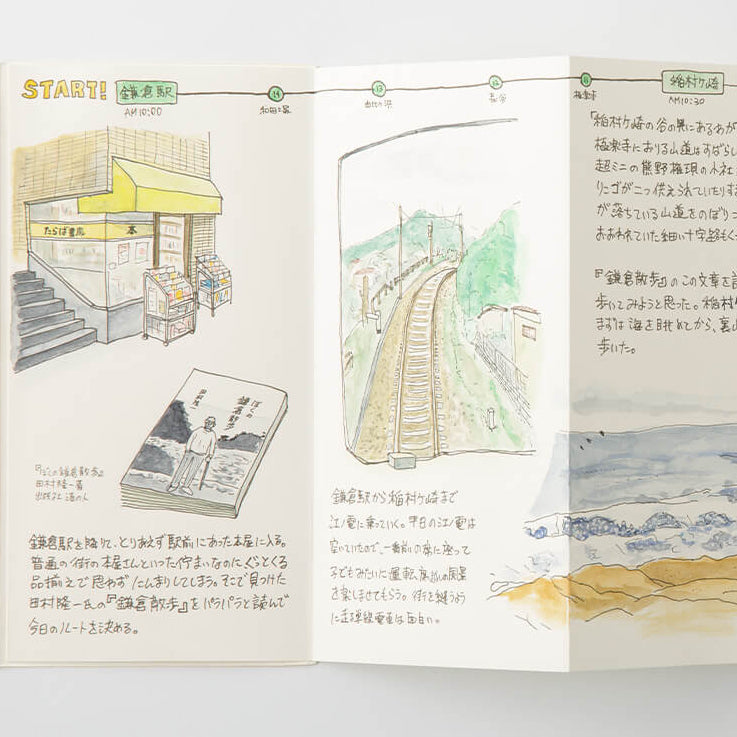 START!
鎌倉駅
AM10:00
14
和田塚
13
由比ヶ浜
12
長谷
11
極楽寺
稲村ヶ崎
AM10:30
たらば書房
本
ぼくの
鎌倉散歩
田村隆一
『ぼくの鎌倉散歩』
田村隆一著
出版社 港の人
鎌倉駅を降りて、とりあえず駅前にあった本屋に入る。
普通の街の本屋さんといった佇まいなのに、ぐっとくる
品揃えで思わずにんまりしてしまう。そこで見つけた
田村隆一氏の『鎌倉散歩』をパラパラと読んで
今日のルートを決める。
鎌倉駅から稲村ヶ崎まで
江ノ電に乗っていく。平日の江ノ電は
空いていたので、一番前の席に座って
子どもみたいに運転席からの風景
を楽しませてもらう。街を縫うよう
に走る単線電車は面白い。
「稲村ヶ崎の谷の奥にあるわが
極楽寺におりる山道はすばらし
超ミニの熊野権現の小社
リンゴが二つ供えられていたりす
が落ちている山道をのぼりつ
おおわれていた細い十字路もくっ
『鎌倉散歩』のこの文章を読
歩いてみようと思った。稲村ヶ
まずは海を眺めてから、裏山
歩いた。